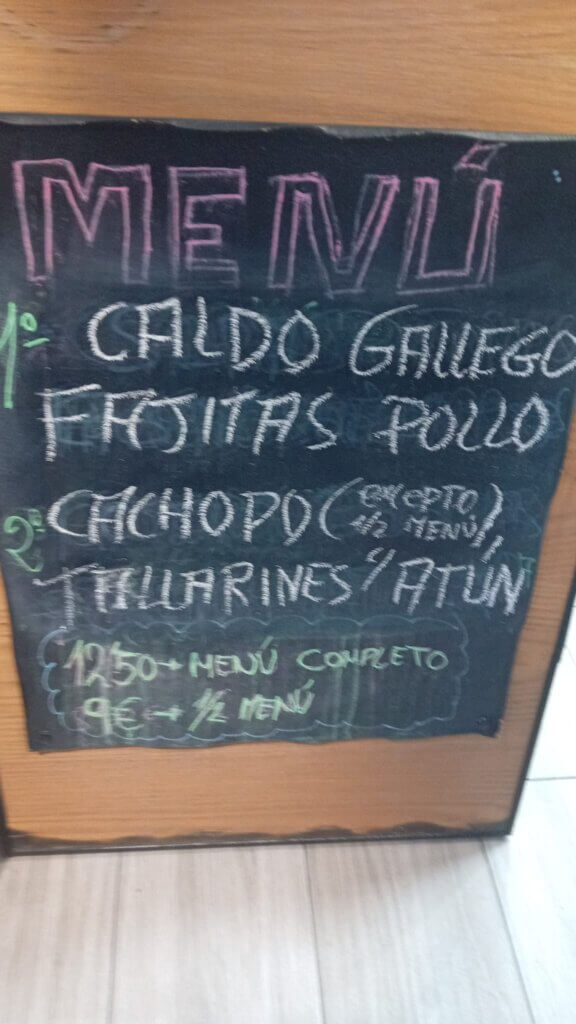 MENÚ
1º CALDO GALLEGO
FAJITAS POLLO
2º CACHOPO (EXCEPTO 1/2 MENÚ),
TALLARINES C/ ATÚN
12'50 → MENÚ COMPLETO
9€ → 1/2 MENÚ